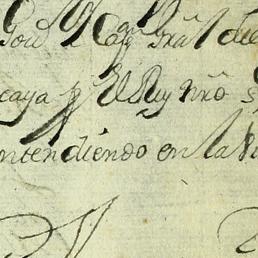 Gov.r y Cap.n Gral de
caya p.r el Rey nrō s
ntendiendo en la v